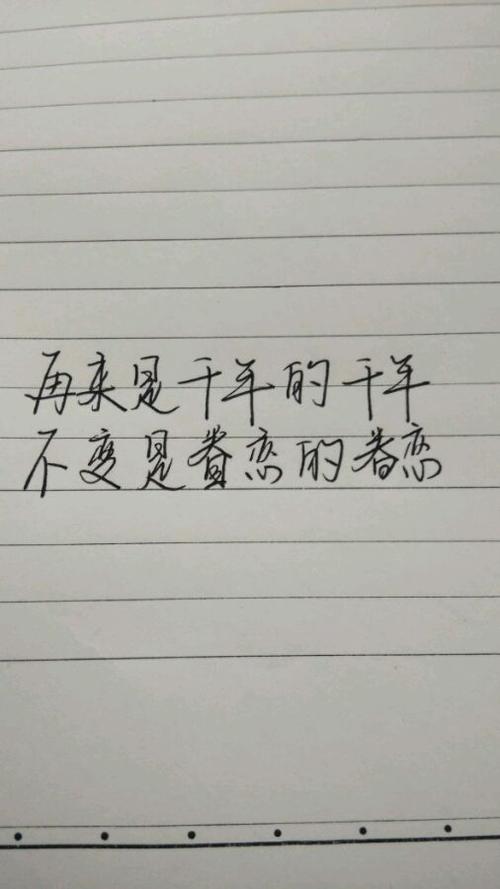 再来是千年的千年
不变是眷恋的眷恋